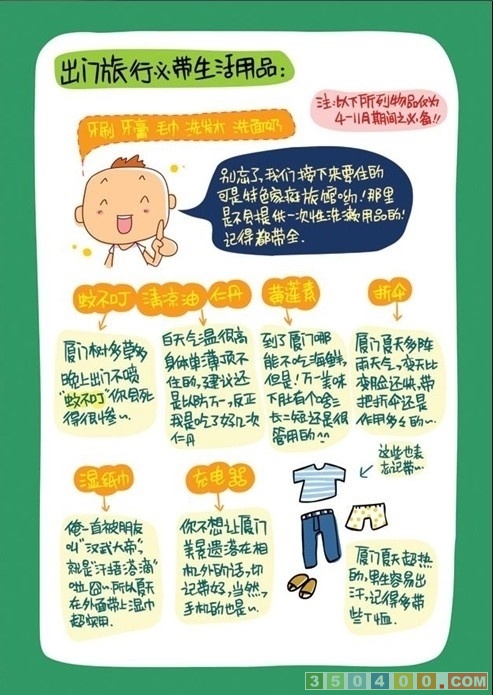 出门旅行必带生活用品:
注:以下所列物品仅为
4-11月期间之必备!!
牙刷 牙膏 毛巾 洗发水 洗面奶
别忘了,我们接下来要住的
可是特色家庭旅馆哟!那里
是不会提供一次性洗漱用品的!
记得都带全.
蚊不叮 清凉油 仁丹
黄莲素
折伞
厦门树多草多
晚上出门不喷
"蚊不叮"你会死
得很惨~.
白天气温很高
身体单薄顶不
住的,建议还
是以防万一,反正
我是吃了好几次
仁丹
到了厦门哪
能不吃海鲜,
但是!万一美味
下肚有个啥三
长二短还是很
管用的~
厦门夏天多阵
雨天气,变天比
变脸还快,带
把折伞还是
作用多多的~.
湿纸巾
充电器
这些也表
忘记带~.
俺一直被朋友
叫"汉武大帝",
就是"汗捂答滴"
啦.囧~.所以夏天
在外面带上湿巾
超好用.
你不想让厦门
美景遗落在相
机外的话,你
记带好,当然,
手机的也是~.
厦门夏天超热
的,男生容易出
汗,记得多带
些T恤.
350400.COM